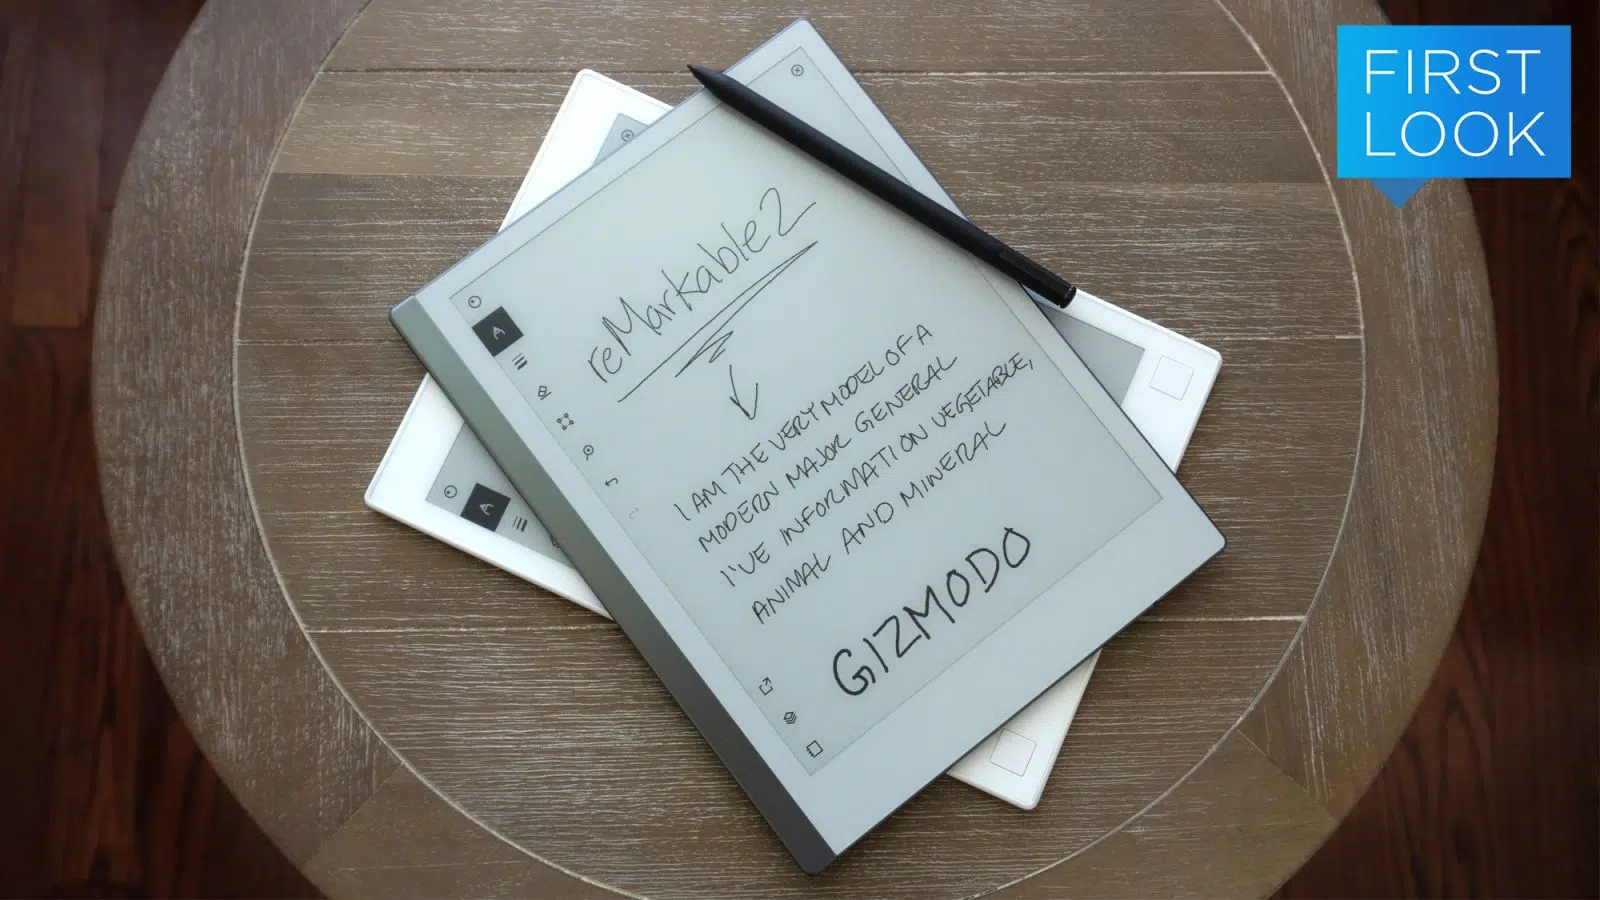 FIRST
LOOK
reMarkable 2
I AM THE VERY MODEL OF A
MODERN MAJOR GENERAL
I'VE INFORMATION VEGETABLE,
ANIMAL AND MINERAL
GIZMODO